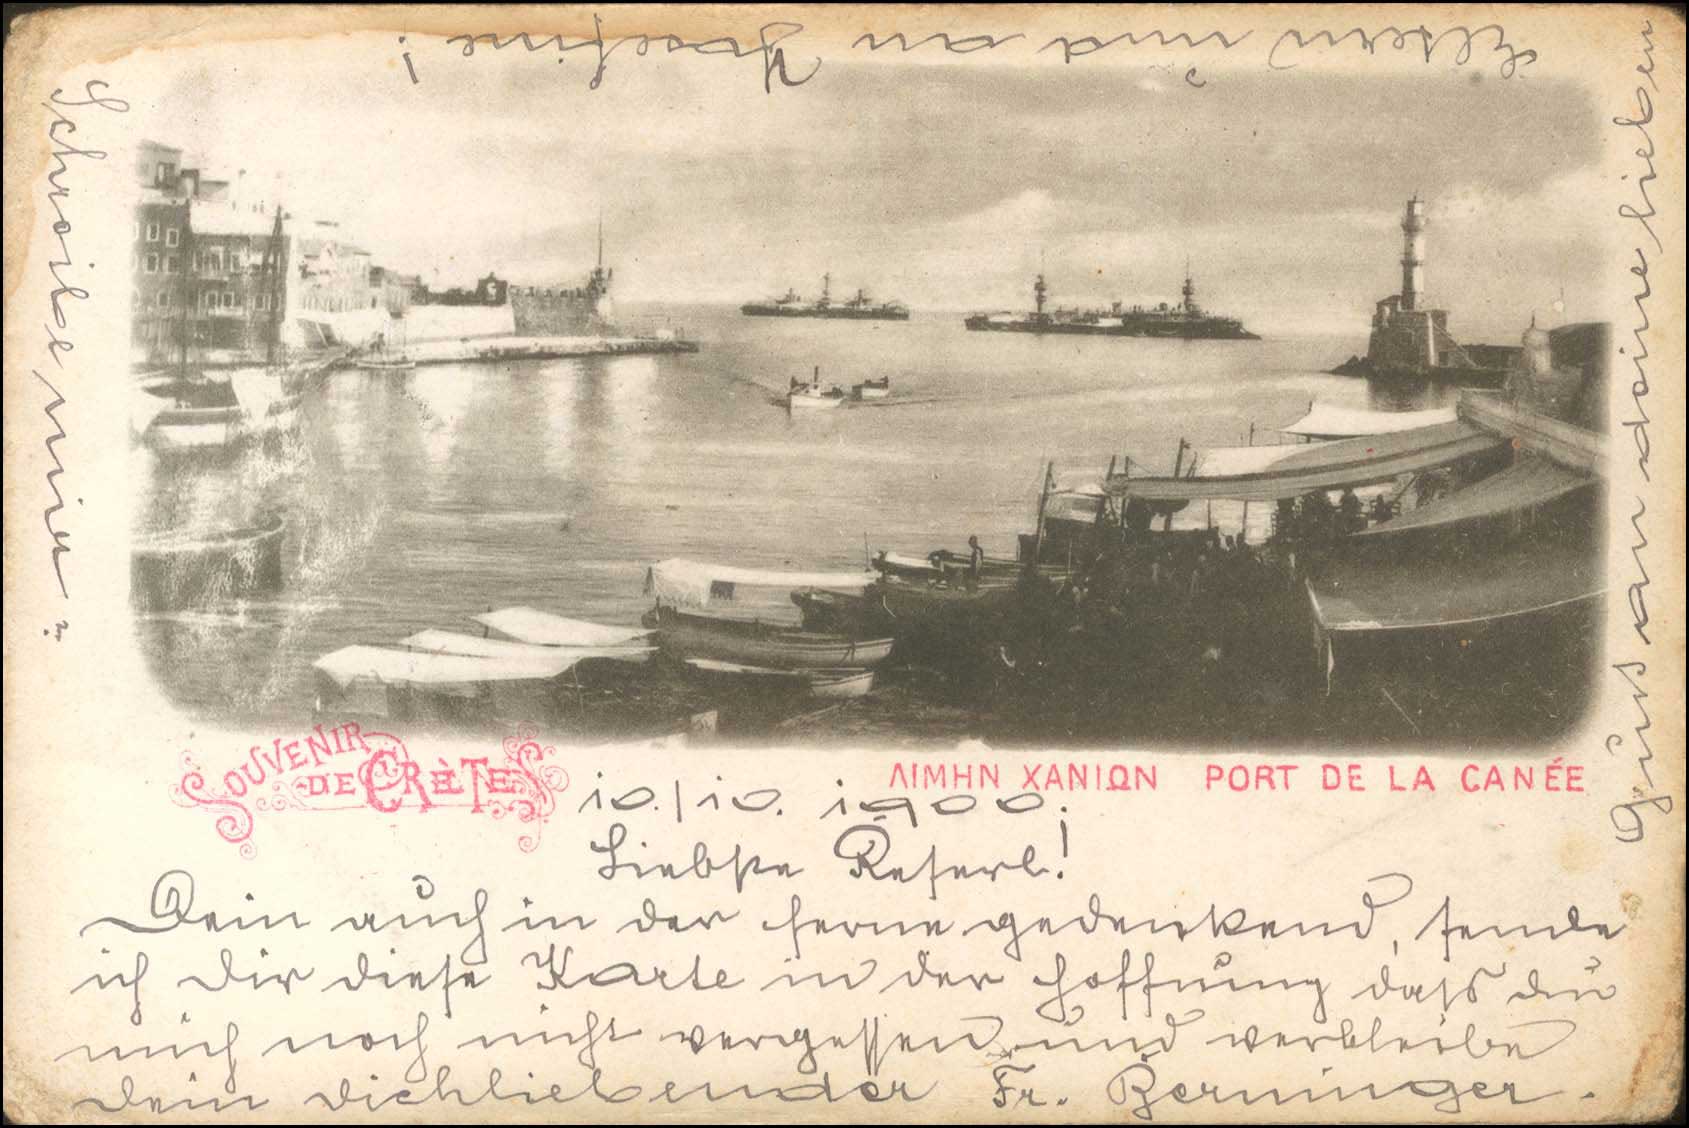 SOUVENIR
DE CRÈTE
ΛΙΜΗΝ ΧΑΝΙΩΝ PORT DE LA CANÉE
10./10. 1900.
Liebste Reserl!
Dein auch in der ferne gedenkend, sende
ich dir diese Karte in der Hoffnung dass du
mich noch nicht vergessen und verbleibe
dein dichliebender Fr. Berninger.
Gruss an deine lieben
Eltern und an Josefine!
Schreibe mir?